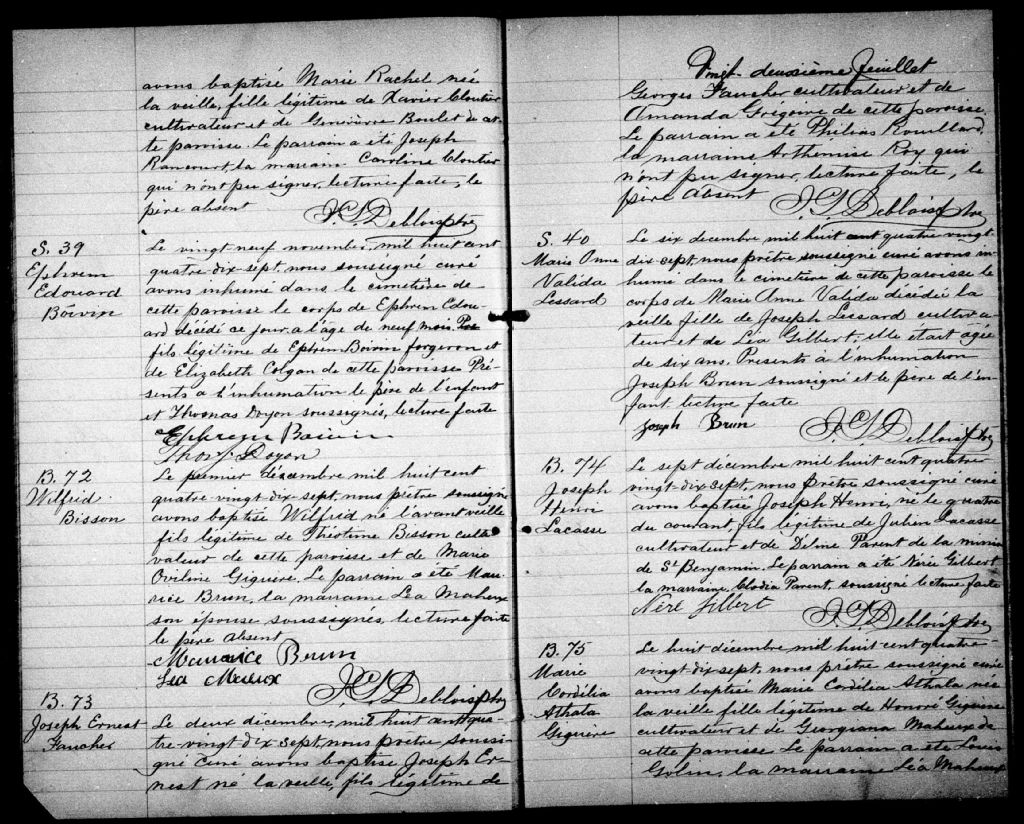 avons baptisé Marie Rachel née
la veille, fille légitime de Xavier Cloutier
cultivateur et de Genevièvre Boulet de cet-
te paroisse. Le parrain a été Joseph
Rancourt, la marraine Caroline Cloutier
qui n'ont pu signer, lecture faite, le
père absent
J. S. Deblois ptre
S. 39
Ephrem
Edouard
Boivin
Le vingt neuf novembre, mil huit cent
quatre-dix-sept, nous soussigné curé
avons inhumé dans le cimetière de
cette paroisse le corps de Ephrem Edou-
ard décédé ce jour a l'age de neuf mois
fils légitime de Ephrem Boivin forgeron et
de Elizabeth Colgan de cette paroisse Pré-
sents a l'inhumation le père de l'enfant
et Thomas Doyon soussignés, lecture faite
Ephrem Boivin
Thos. Doyon
B. 72
Wilfrid
Bisson
Le premier décembre mil huit cent
quatre-vingt-dix-sept, nous prêtre soussigné
avons baptisé Wilfrid né l'avant veille
fils légitime de Théotime Bisson culti-
vateur de cette paroisse et de Marie
Oviline Giguère. Le parrain a été Mau-
rice Brun, la marraine Léa Maheux
son épouse soussignés, lecture faite
le père absent
Maurice Brun
Léa Maheux
J. S. Deblois ptre
B. 73
Joseph Ernest
Faucher
Le deux décembre, mil huit cent qua-
tre-vingt dix sept, nous prêtre soussi-
gné curé avons baptisé Joseph Er-
nest né la veille, fils légitime de
Vingt-deuxième feuillet
Georges Faucher cultivateur et de
Amanda Grégoire de cette paroisse
Le parrain a été Philias Rouillard,
la marraine Arthémise Roy qui
n'ont pu signer, lecture faite, le
père absent
J. S. Deblois ptre
S. 40
Marie Anne
Valida
Lessard
Le six decembre mil huit cent quatre vingt
dix sept, nous prêtre soussigné curé avons in-
humé dans le cimetière de cette paroisse le
corps de Marie Anne Valida décédée la
veille fille de Joseph Lessard cultiva-
teur et de Léa Gilbert; elle était agée
de six ans. Presents à l'inhumation
Joseph Brun soussigné et le père de l'en-
fant lecture faite
Joseph Brun
J. S. Deblois ptre
B. 74
Joseph
Henri
Lacasse
Le sept décembre mil huit cent quatre
vingt-dix sept, nous prêtre soussigné curé
avons baptisé Joseph Henri, né le quatre
du courant, fils légitime de Julien Lacasse
cultivateur et de Délima Parent de la mission
de St Benjamin. Le parrain a été Nérée Gilbert
la marraine, Clodia Parent, soussigné lecture faite
Neré Gilbert
J. S. Deblois ptre
B. 75
Marie
Cordélia
Athala
Giguère
Le huit décembre mil huit cent quatre-
vingt-dix-sept, nous prêtre soussigné curé
avons baptisé Marie Cordélia Athala née
la veille fille légitime de Honoré Giguère
cultivateur et de Georgiana Maheux de
cette paroisse Le parrain a été Louis
la marraine Léa Maheux